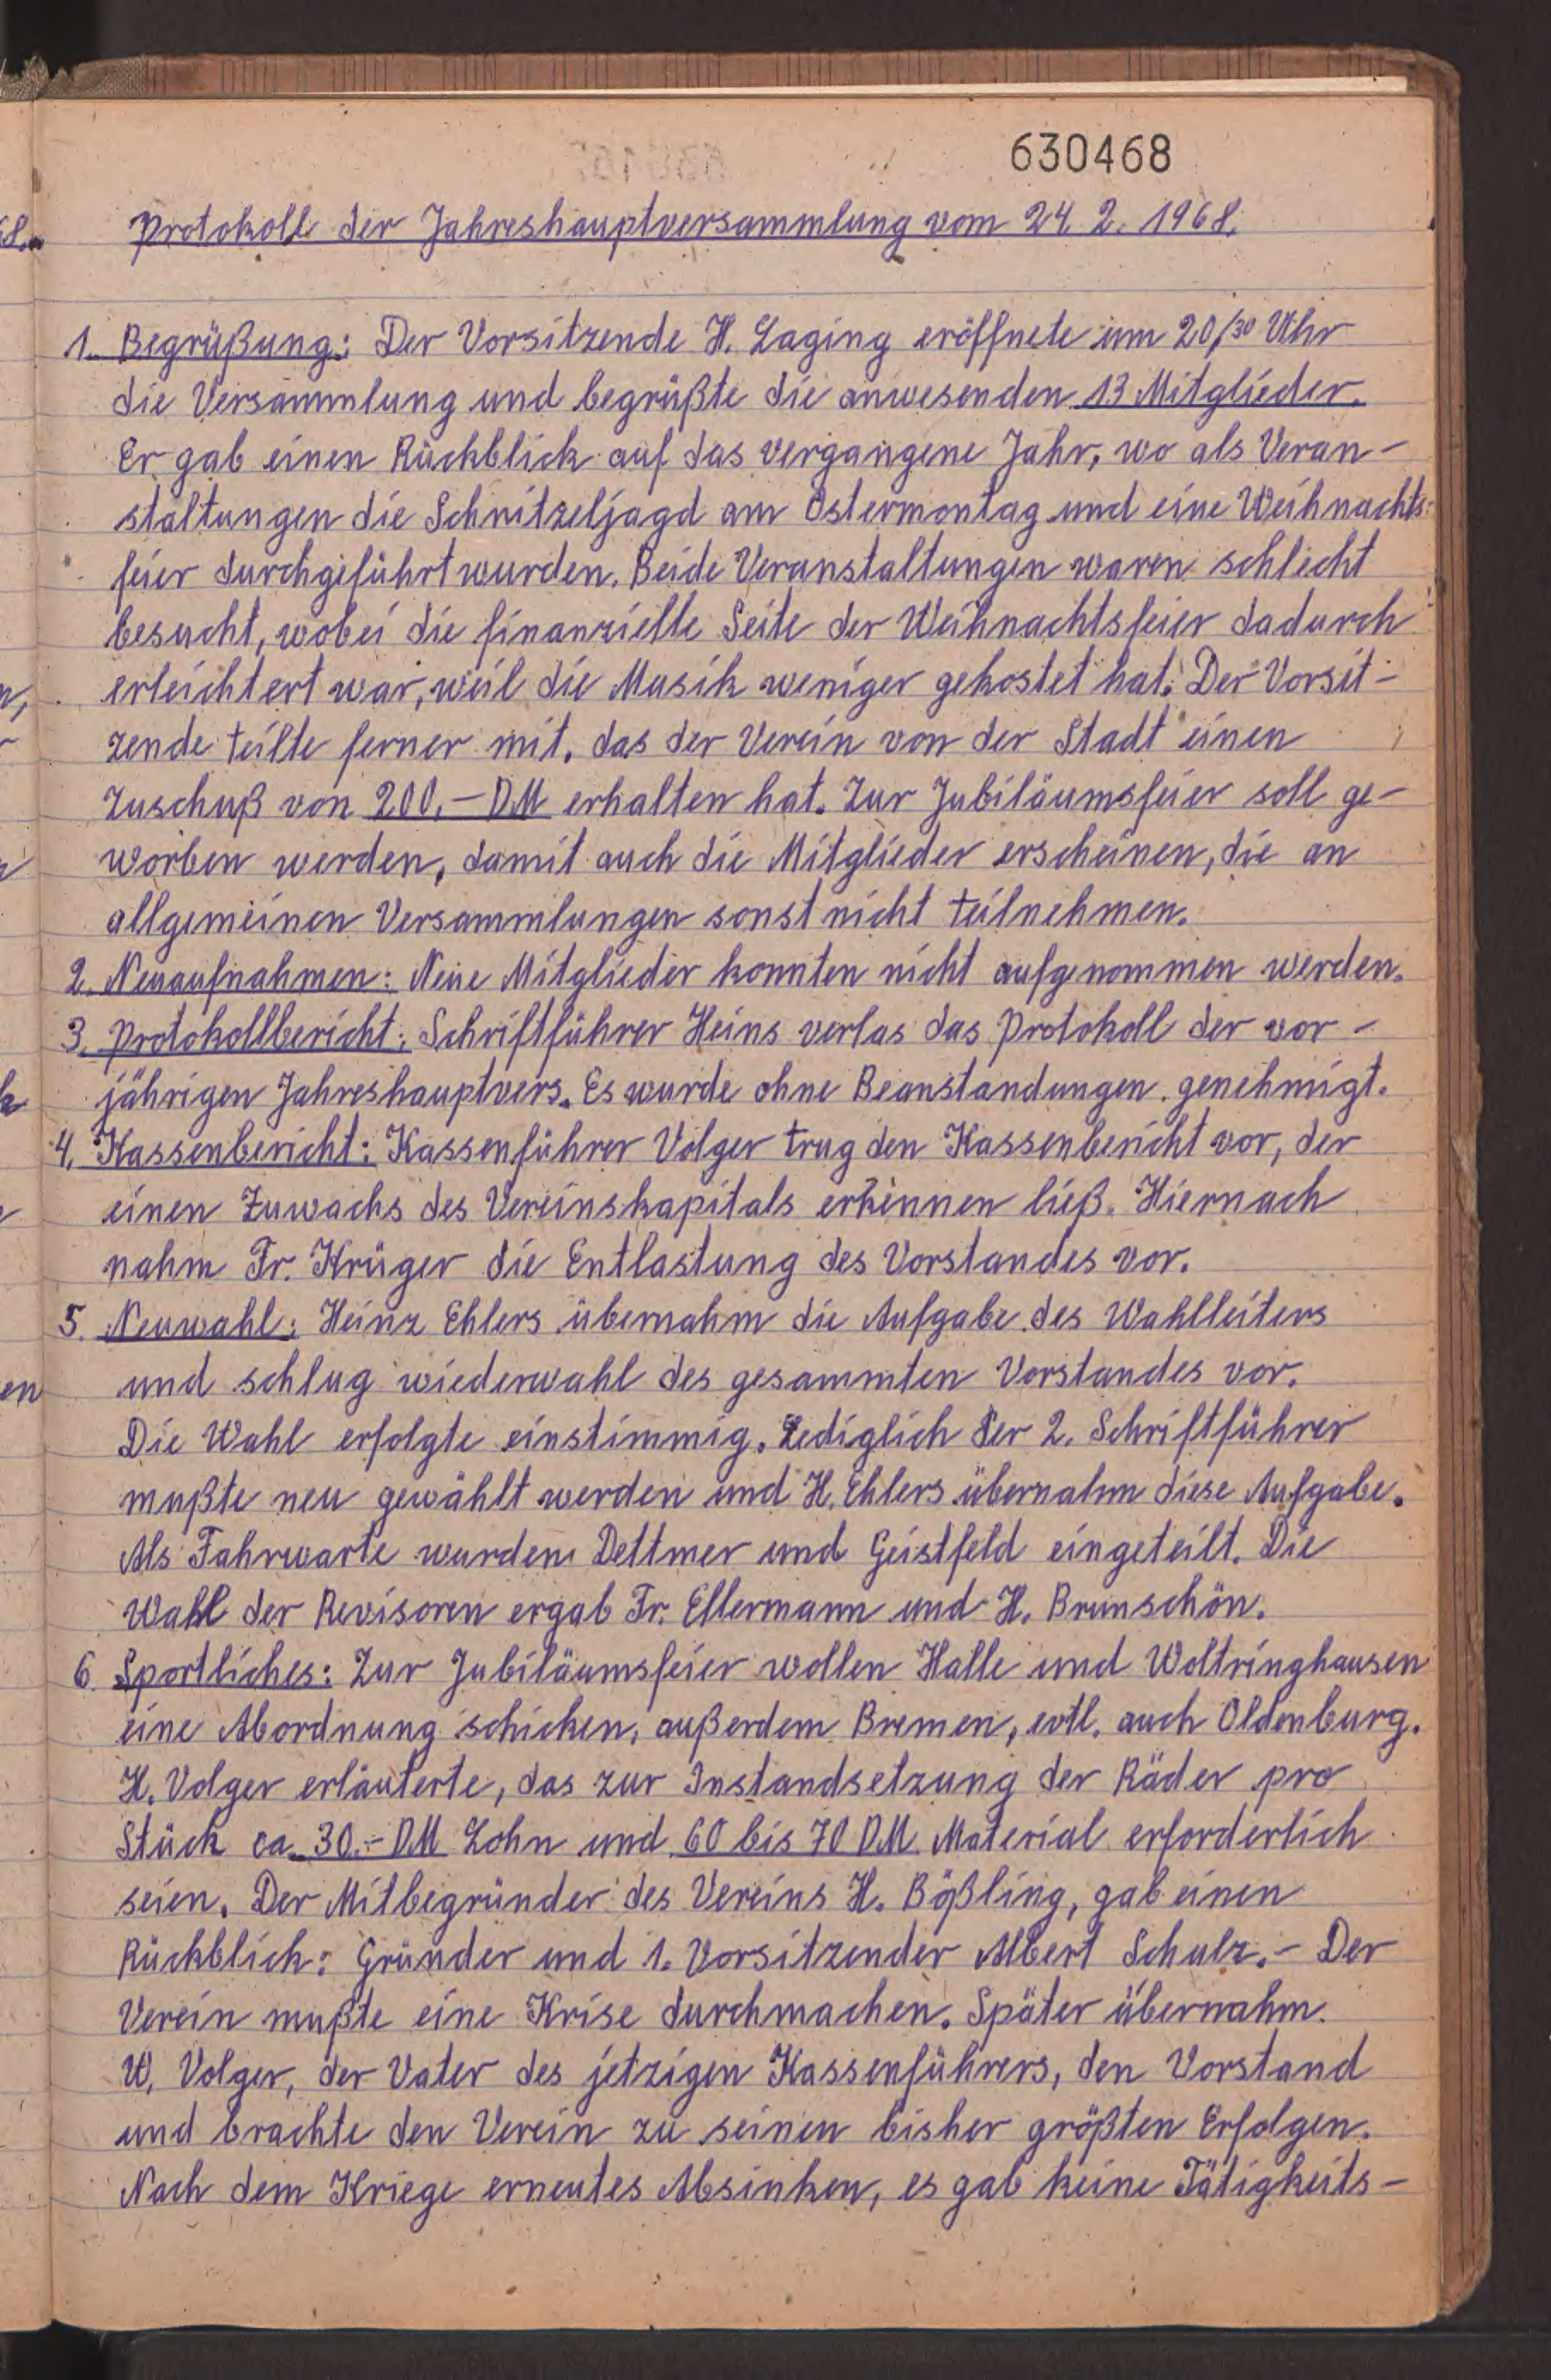 630468
Protokoll der Jahreshauptversammlung vom 24. 2. 1968.
1. Begrüßung: Der Vorsitzende H. Laging eröffnete um 20/30 Uhr
die Versammlung und begrüßte die anwesenden 13 Mitglieder.
Er gab einen Rückblick auf das vergangene Jahr, wo als Veran-
staltungen die Schnitzeljagd am Ostermontag und eine Weihnachts-
feier durchgeführt wurden. Beide Veranstaltungen waren schlecht
besucht, wobei die finanzielle Seite der Weihnachtsfeier dadurch
erleichtert war, weil die Musik weniger gekostet hat. Der Vorsit-
zende teilte ferner mit, das der Verein von der Stadt einen
Zuschuß von 200,- DM erhalten hat. Zur Jubiläumsfeier soll ge-
worben werden, damit auch die Mitglieder erscheinen, die an
allgemeinen Versammlungen sonst nicht teilnehmen.
2. Neuaufnahmen: Neue Mitglieder konnten nicht aufgenommen werden.
3. Protokollbericht: Schriftführer Heins verlas das Protokoll der vor-
jährigen Jahreshauptvers. Es wurde ohne Beanstandungen genehmigt.
4. Kassenbericht: Kassenführer Volger trug den Kassenbericht vor, der
einen Zuwachs des Vereinskapitals erkennen ließ. Hiernach
nahm Fr. Krüger die Entlastung des Vorstandes vor.
5. Neuwahl: Heinz Ehlers übernahm die Aufgabe des Wahlleiters
und schlug wiederwahl des gesammten Vorstandes vor.
Die Wahl erfolgte einstimmig. Lediglich der 2. Schriftführer
mußte neu gewählt werden und H. Ehlers übernahm diese Aufgabe.
Als Fahrwarte wurden Dettmer und Geistfeld eingeteilt. Die
Wahl der Revisoren ergab Fr. Ellermann und H. Brunschön.
6. Sportliches: Zur Jubiläumsfeier wollen Halle und Woltringhausen
eine Abordnung schicken, außerdem Bremen, evtl. auch Oldenburg.
H. Volger erläuterte, das zur Instandsetzung der Räder pro
Stück ca. 30.- DM Lohn und 60 bis 70 DM Material erforderlich
seien. Der Mitbegründer des Vereins H. Bößling, gab einen
Rückblick: Gründer und 1. Vorsitzender Albert Schulz.- Der
Verein mußte eine Krise durchmachen. Später übernahm
W. Volger, der Vater des jetzigen Kassenführers, den Vorstand
und brachte den Verein zu seinen bisher größten Erfolgen.
Nach dem Kriege erneutes Absinken, es gab keine Tätigkeits-